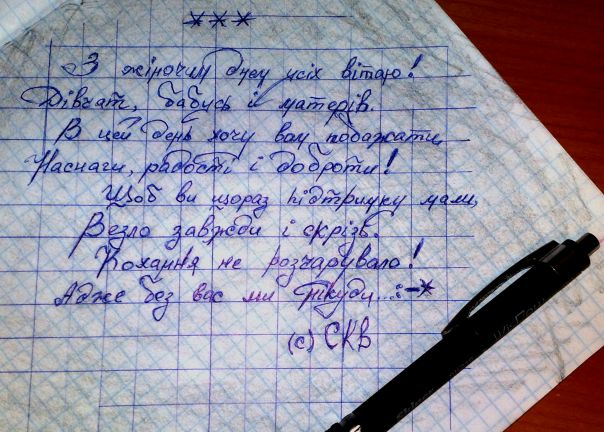 ***
З жіночим днем усіх вітаю!
Дівчат, бабусь і матерів.
В цей день хочу вам побажати
Наснаги, радості і доброти!
Щоб ви щораз підтримку мали,
Везло завжди і скрізь.
Кохання не розчарувало!
Адже без вас ми нікуди...:-*
(с) СКВ